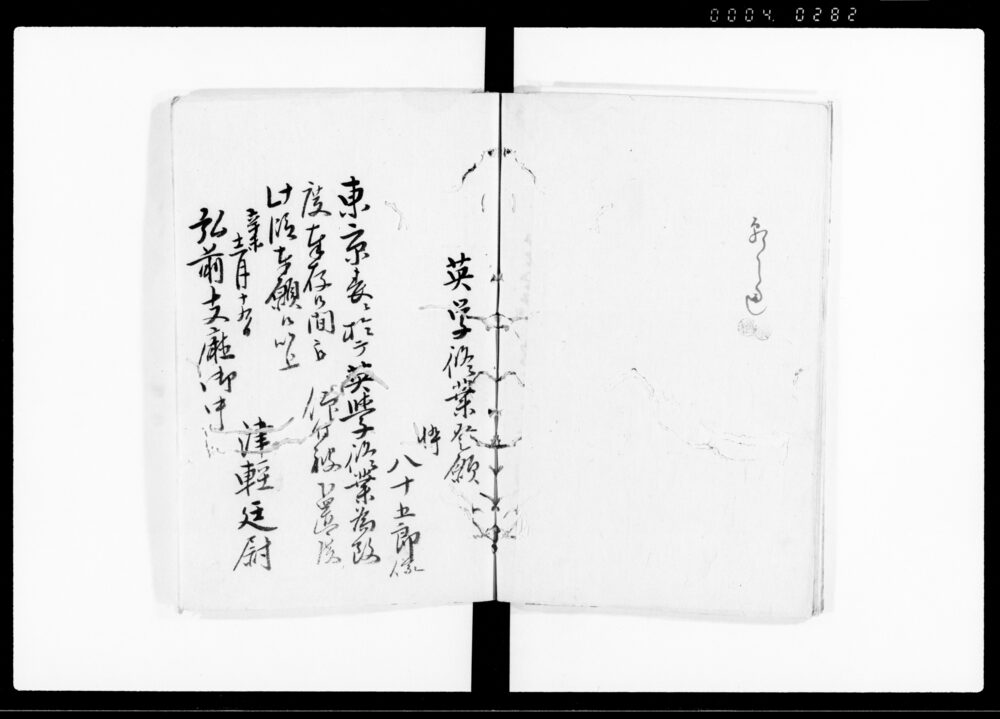 0004 0282
英学修業登願
悴
八十五郎儀
東京表ニ於テ英学修業為致
度奉存候間 仰付被下置度
此段奉願候以上
辛未
十二月十九日
津軽廷尉
弘前支庁御中